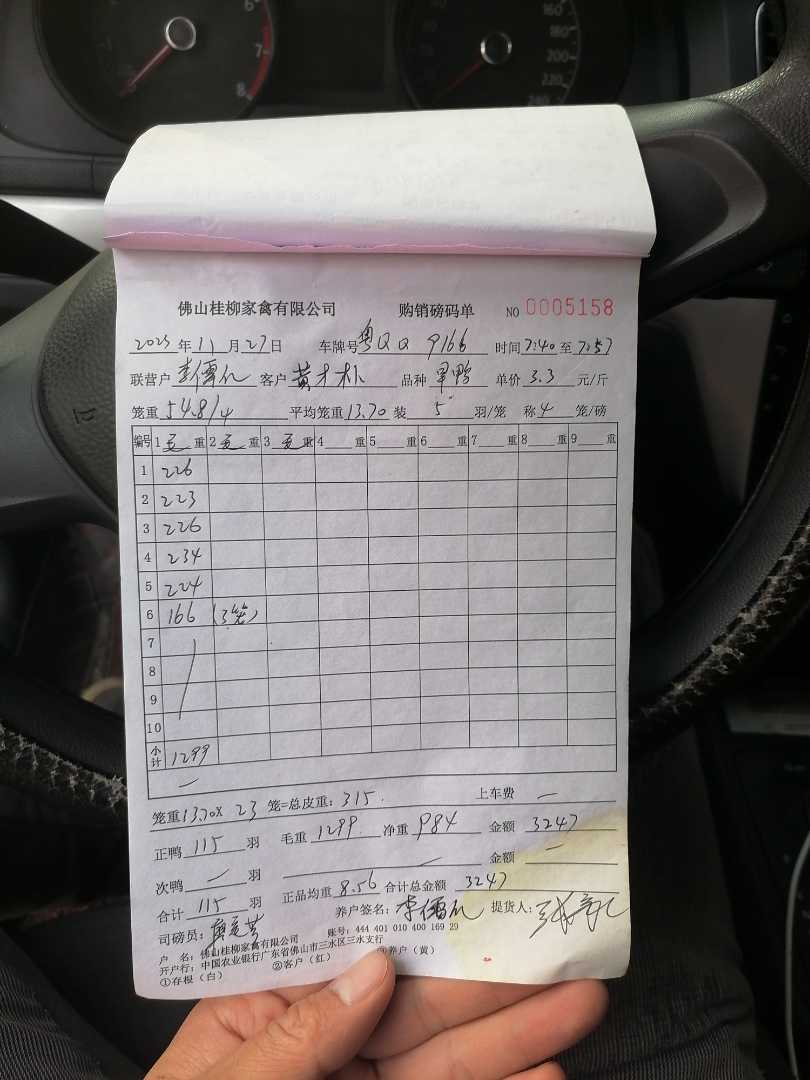 佛山桂柳家禽有限公司 购销磅码单 NO 0005158
2023 年 11 月 27 日 车牌号 粤QQ 9166 时间 7:40 至 7:57
联营户 李儒 客户 黄才朴 品种 旱鸭 单价 3.3 元/斤
笼重 54.8/4 平均笼重 13.70 装 5 羽/笼 称 4 笼/磅
编号 1 毛 重 2 毛 重 3 毛 重 4 重 5 重 6 重 7 重 8 重 9 重
1 226
2 223
3 226
4 234
5 224
6 166 (3笼)
7
8
9
10
小计 1299
笼重 13.70 X 23 笼=总皮重: 315. 上车费 —
正鸭 115 羽 毛重 1299 净重 984 金额 3247
次鸭 — 羽 — 金额 —
合计 115 羽 正品均重 8.56 合计总金额 3247
司磅员: 养户签名: 李儒 提货人:
户 名: 佛山桂柳家禽有限公司 账号: 444 401 010 400 169 29
开户行: 中国农业银行广东省佛山市三水区三水支行
①存根(白) ②客户(红) 养户(黄)
160
180
200
220
240
6
7
8